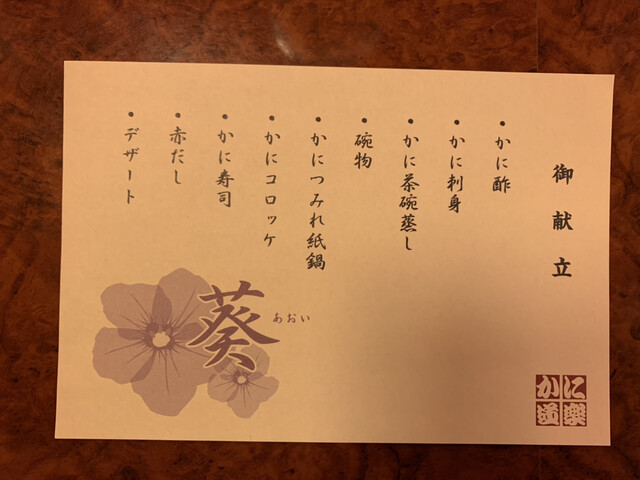 御献立
・かに酢
・かに刺身
・かに茶碗蒸し
・碗物
・かにつみれ紙鍋
・かにコロッケ
・かに寿司
・赤だし
・デザート
葵
あおい
かに
道楽